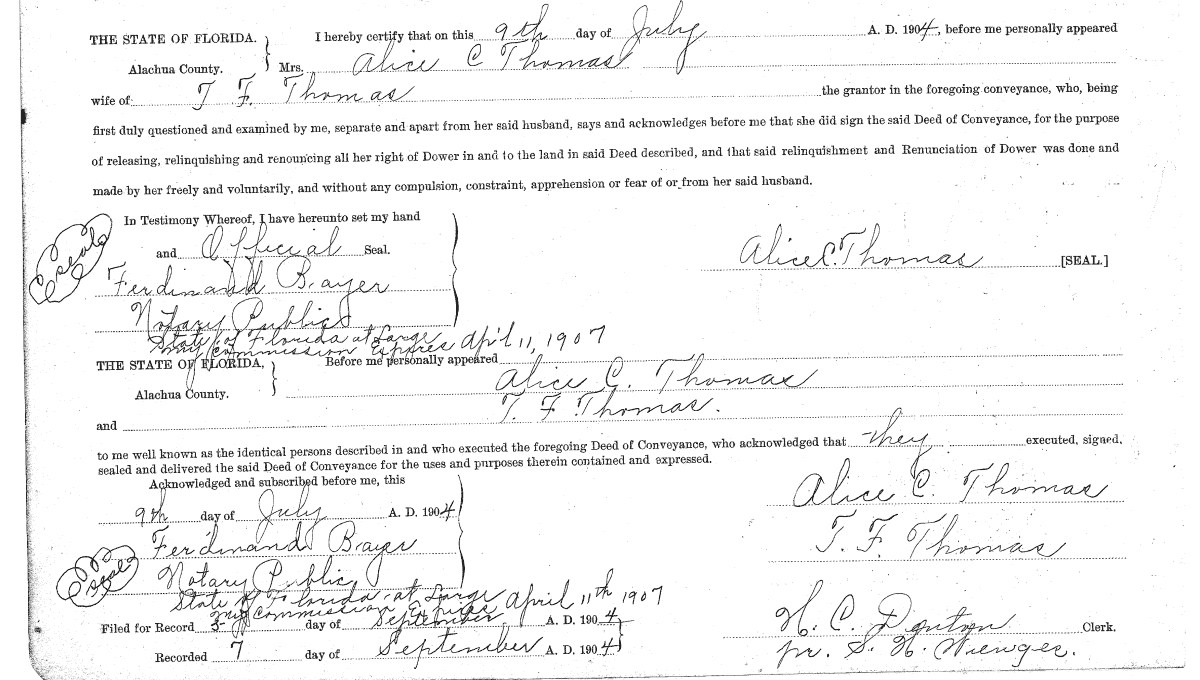 THE STATE OF FLORIDA. } I hereby certify that on this 9th day of July A. D. 1904, before me personally appeared
Alachua County. Mrs. Alice C Thomas
wife of T F. Thomas the grantor in the foregoing conveyance, who, being
first duly questioned and examined by me, separate and apart from her said husband, says and acknowledges before me that she did sign the said Deed of Conveyance, for the purpose
of releasing, relinquishing and renouncing all her right of Dower in and to the land in said Deed described, and that said relinquishment and Renunciation of Dower was done and
made by her freely and voluntarily, and without any compulsion, constraint, apprehension or fear of or from her said husband.
In Testimony Whereof, I have hereunto set my hand
and Official Seal.
Seal
Alice C. Thomas [SEAL.]
Ferdinand Bayer
Notary Public
State of Florida at Large
my Commission Expires April 11, 1907
THE STATE OF FLORIDA, } Before me personally appeared
Alachua County. Alice C. Thomas
and T. F Thomas.
to me well known as the identical persons described in and who executed the foregoing Deed of Conveyance, who acknowledged that they executed, signed,
sealed and delivered the said Deed of Conveyance for the uses and purposes therein contained and expressed.
Acknowledged and subscribed before me, this
Alice C. Thomas
9th day of July A. D. 1904
Ferdinand Bayer
T. F. Thomas
Seal
Notary Public
State of Florida at Large
my Commission Expires April 11th 1907
Filed for Record 3 day of September A. D. 1904
H. C. Denton Clerk.
Recorded 7 day of September A. D. 1904
pr. S. H. Wienges.